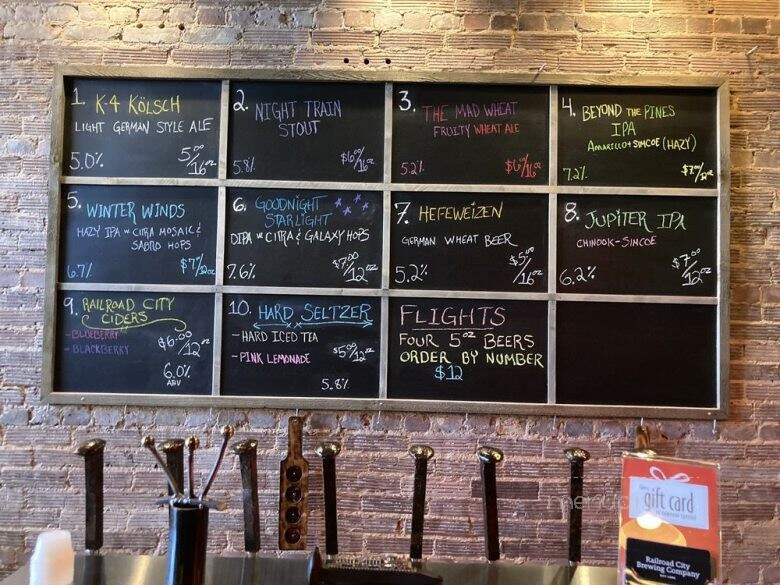 1. K-4 KÖLSCH
LIGHT GERMAN STYLE ALE
5.0%
5.00/16oz
2. NIGHT TRAIN
STOUT
5.8%
$6/16oz
3. THE MAD WHEAT
FRUITY WHEAT ALE
5.2%
$6/16oz
4. BEYOND THE PINES
IPA
AMARILLO & SIMCOE (HAZY)
7.2%
5. WINTER WINDS
HAZY IPA W CITRA MOSAIC &
SABRO HOPS
6.7%
$7/12oz
6. GOODNIGHT
STARLIGHT
DIPA W CITRA & GALAXY HOPS
7.6%
$7.00/12oz
7. HEFEWEIZEN
GERMAN WHEAT BEER
5.2%
$5.00/16oz
8. JUPITER IPA
CHINOOK-SIMCOE
6.2%
$7.00/12oz
9. RAILROAD CITY
CIDERS
- BLUEBERRY
- BLACKBERRY
$6.00/12oz
6.0%
ABV
10. HARD SELTZER
- HARD ICED TEA
- PINK LEMONADE
$5.00/12oz
5.8%
FLIGHTS
FOUR 5oz BEERS
ORDER BY NUMBER
$12
gift card
Railroad City
Brewing Company